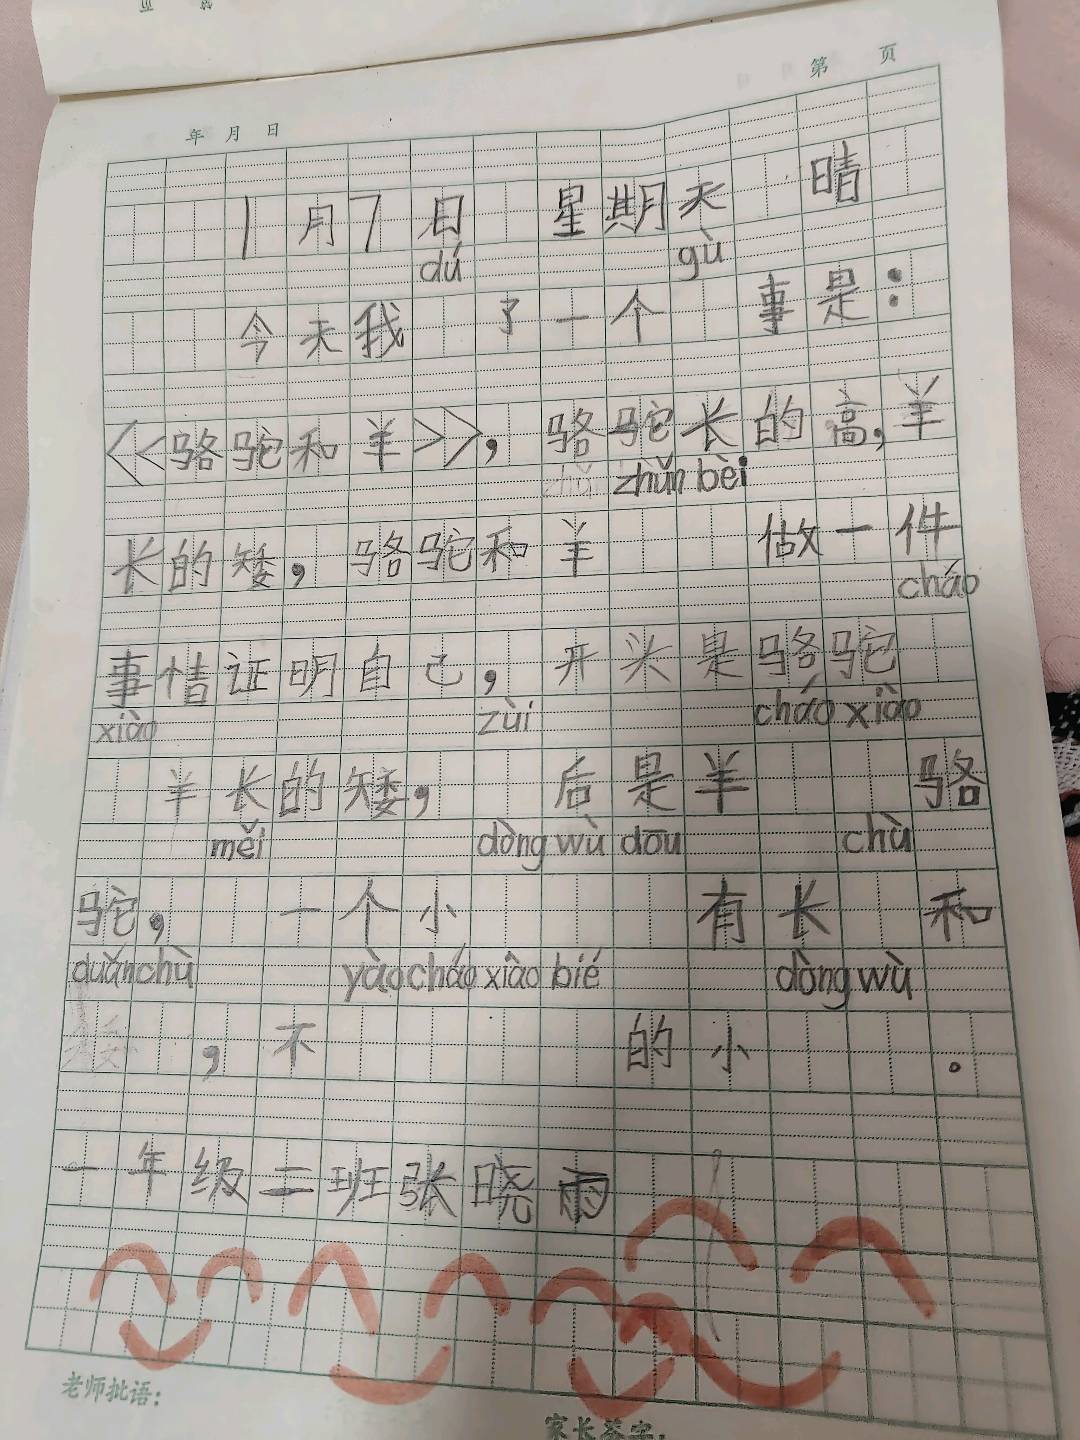 第 页
年 月 日
1月7日 星期天 晴
dú gù
今天我 了一个 事是：
<<骆驼和羊>>，骆驼长的高，羊
zhǔn bèi
长的矮，骆驼和羊 做一件
cháo
事情证明自己，开头是骆驼
xiào zùi cháo xiào
羊长的矮， 后是羊 骆
měi dòng wù dōu chù
驼， 一个小 有长 和
duǎn chù yào cháo xiào bié dòng wù
，不 的小 。
一年级二班张晓雨
老师批语：
家长签字：